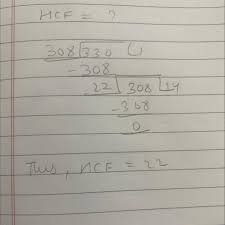 HCF = ?
308 330 (
- 308
22 308 14
- 308
0
Thus, HCF = 22